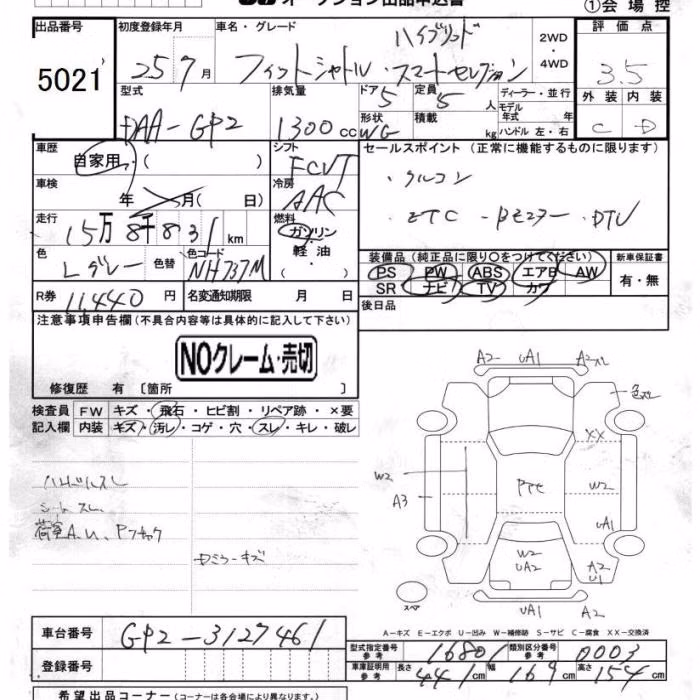 オークション出品申込書
①会場控
出品番号 初度登録年月 車名・グレード 評価点
5021 25 7月 フィットシャトル・ハイブリッド スマートセレクション 2WD ・ 4WD 3.5
型式 排気量 ドア 5 定員 5人 ディーラー・並行 外装 内装
DAA-GP2 1300cc 形状 WG 積載 kg モデル年式 年式 ハンドル 左・右 C D
車歴 自家用・( ) シフト FCVT セールスポイント (正常に機能するものに限ります)
車検 年 月( 日) 冷房 AAC ・アルコン
走行 15万8千831km 燃料 ガソリン・軽油・( ) ・ETC ・DTV
色 Lグレー 色替 色コード NH737M 装備品(純正品に限り○をつけてください) 新車保証書
PS PW ABS エアB AW 有・無
SR ナビ TV カワ
R券 11,440円 名変通知期限 月 日 後日品
注意事項申告欄(不具合内容等は具体的に記入して下さい)
NOクレーム・売切
修復歴 有〔箇所 〕
検査員 FW キズ・飛石・ヒビ割・リペア跡・×要
記入欄 内装 キズ・汚レ・コゲ・穴・スレ・キレ・破レ
ハンドルスレ
シートスレ
Dミラーキズ
A2 UA1 A2
XX
W2 W2
A3
UA1
W2
UA2 A2
U1
スペア UA1 A2
A-キズ E-エクボ U-凹み W-補修跡 S-サビ C-腐食 XX-交換済
車台番号 GP2-3127461 型式指定番号 参考 16801 類別区分番号 参考 0003
登録番号 車庫証明用 参考 長さ 441cm 幅 169cm 高さ 154cm
希望出品コーナー(コーナーは各会場により異なります)